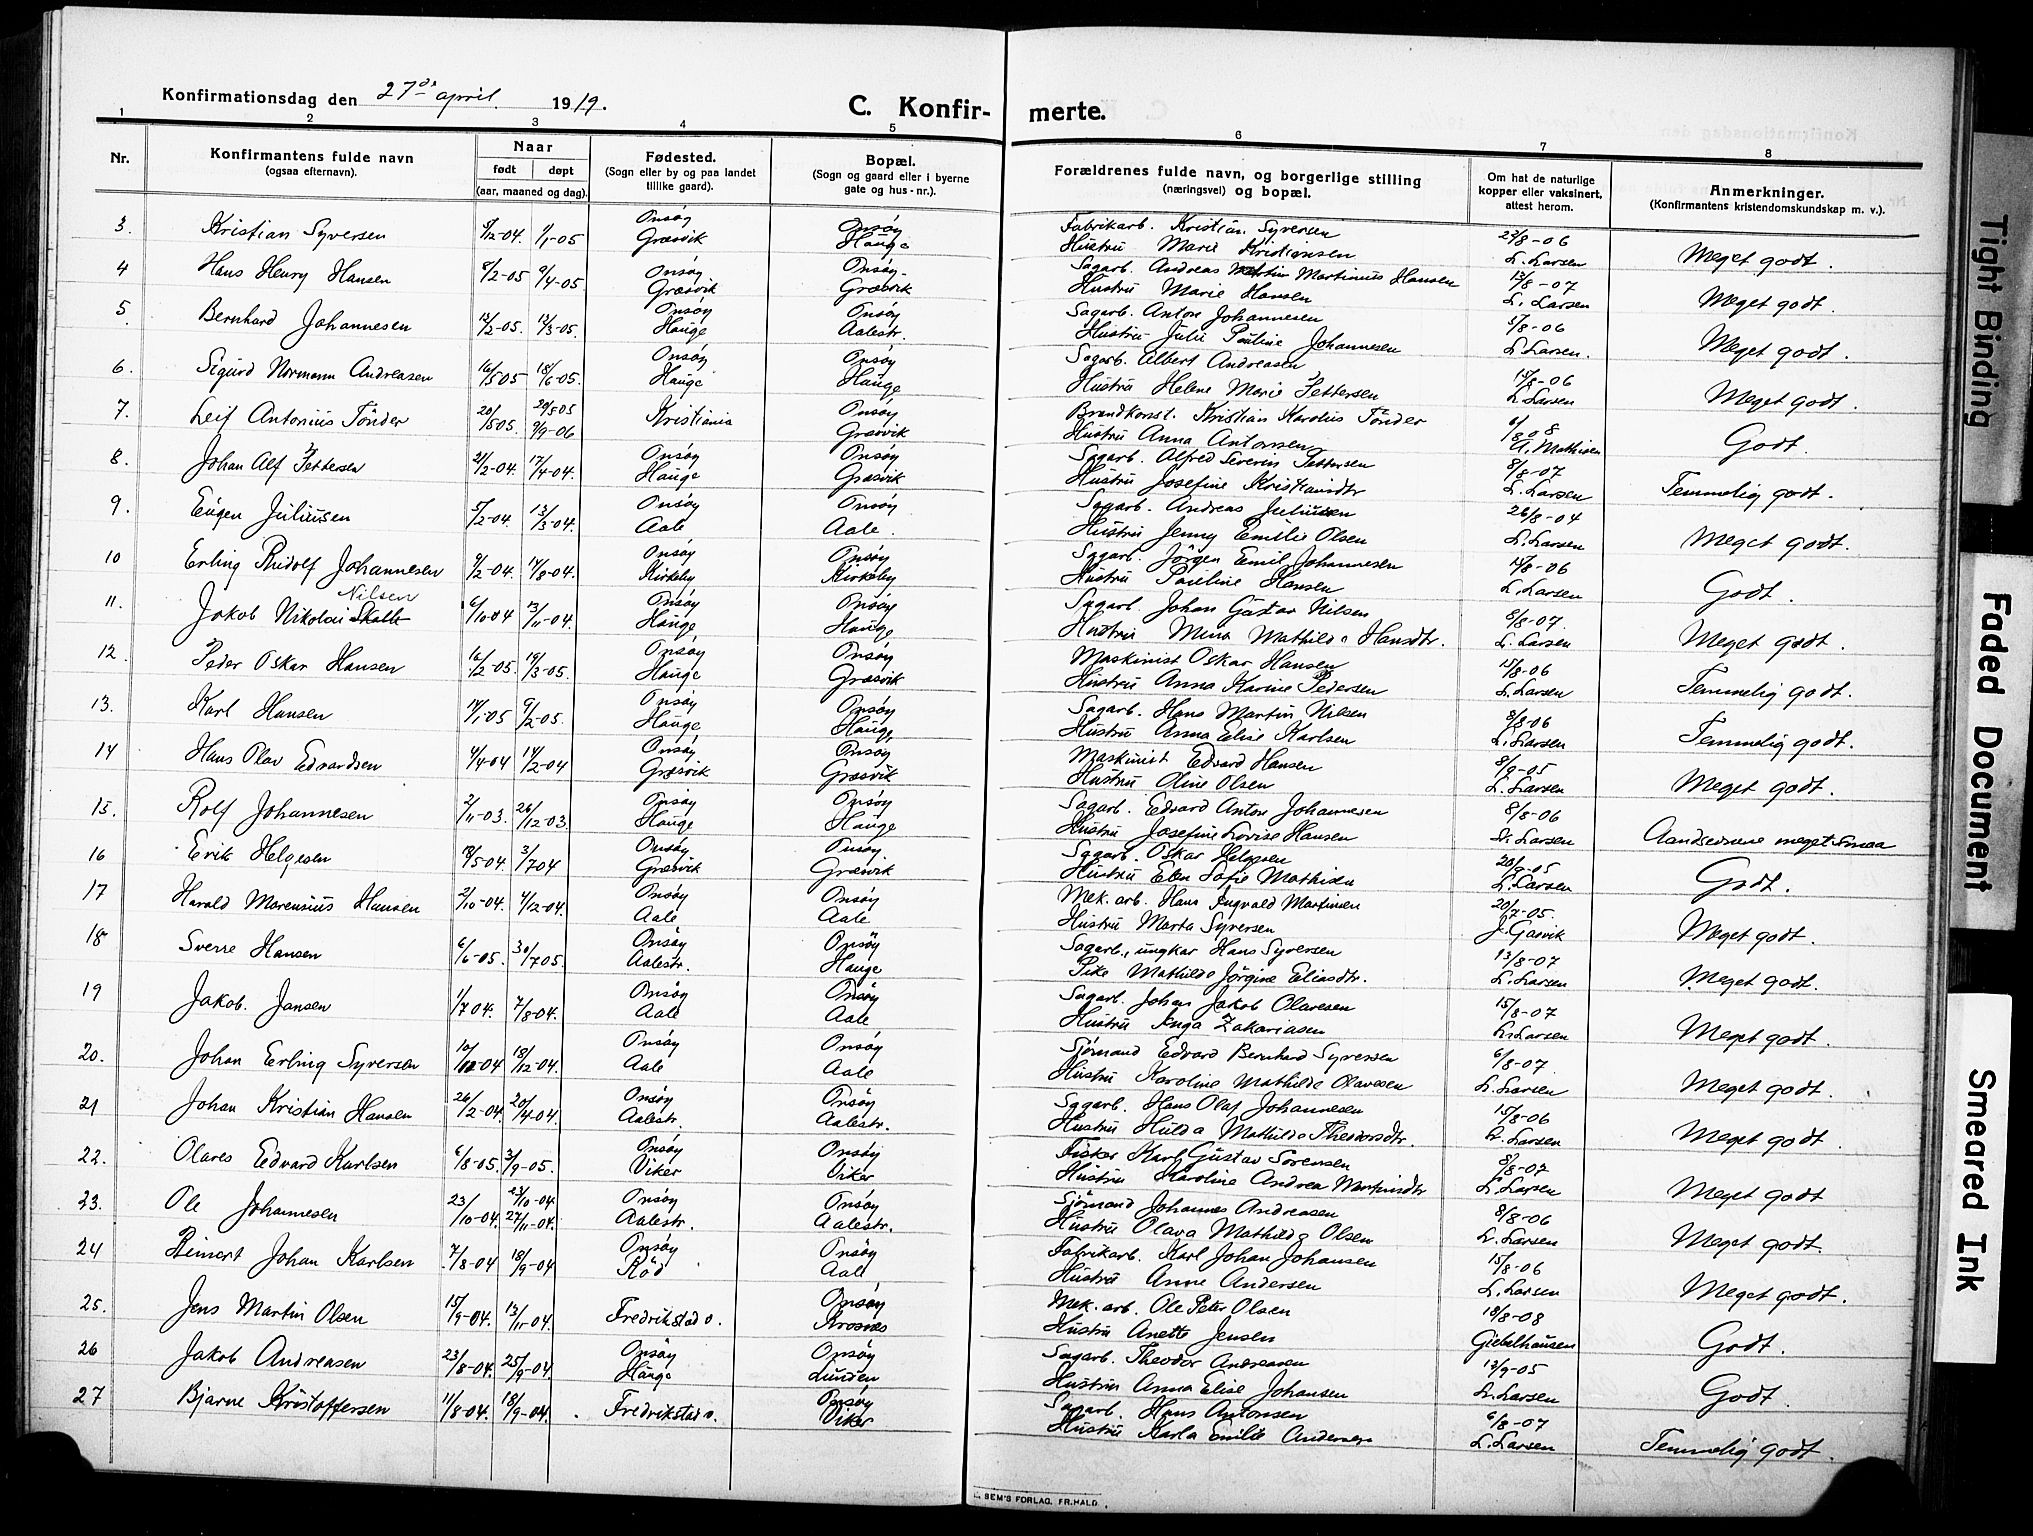 Konfirmationsdag den 27de april. 1919.
C. Konfir-
merte.
1 2 3 4 5 6 7 8
Nr.
Konfirmantens fulde navn
(ogsaa efternavn).
Naar
født døpt
(aar, maaned og dag).
Fødested.
(Sogn eller by og paa landet
tillike gaard).
Bopæl.
(Sogn og gaard eller i byerne
gate og hus-nr.).
Forældrenes fulde navn, og borgerlige stilling
(næringsvei) og bopæl.
Om hat de naturlige
kopper eller vaksinert,
attest herom.
Anmerkninger.
(Konfirmantens kristendomskundskap m. v.).
3. Kristian Syversen 5/12-04. 1/1-05 Onsøy Græsvik Onsøy Hauge Fabrikarb. Kristian Syversen 23/8-06
Hustru Marie Kristiansen L. Larsen Meget godt.
4 Hans Henry Hansen 8/2-05 9/4-05 Onsøy. Græsvik Onsøy. Græsvik Sagarb. Andreas Martinius Hansen 13/8-07
Hustru Marie Hansen L. Larsen Meget godt.
5. Bernhard Johannesen 13/2-05. 12/3-05. Onsøy Hauge Onsøy Aalestr. Sagarb. Anton Johannesen 5/8-06
Hustru Julie Pauline Johannesen L. Larsen. Meget godt.
6. Sigurd Normann Andreasen 16/5 05 18/6-05. Onsøy Hauge Onsøy Hauge Sagarb. Albert Andreasen 15/8-06
Hustru Helene Marie Pettersen L. Larsen Meget godt.
7. Leif Antonius Tönder 20/5 05. 20/5 05 9/9-06 Kristiania Onsøy Græsvik Brandkonst. Kristian Karolius Tönder 6/8 08
Hustru Anna Antonsen A. Mathisen Godt.
8. Johan Alf Pettersen 21/2-04. 17/4-04. Onsøy Hauge Onsøy Græsvik Sagarb. Alfred Severin Pettersen 8/8-07
Hustru Josefine Kristiansdtr L. Larsen Temmelig godt.
9. Eugen Juliussen 5/2-04. 13/3-04. Onsøy Aale Onsøy Aale. Sagarb. Andreas Juliussen 26/8-04
Hustru Jenny Emilie Olsen L. Larsen Meget godt.
10 Erling Rudolf Johannesen 9/2-04. 14/8-04. Onsøy Kirkeby Onsøy Kirkeby Sagarb. Jörgen Emil Johannesen 14/8-06
Hustru Pauline Hansen L. Larsen Godt.
Nilsen
11. Jakob Nikolai Skalle 6/10-04 13/11-04. Onsøy Hauge Onsøy Hauge Sagarb. Johan Gustav Nilsen 8/8-07.
Hustru Mina Mathilde Hansdtr. L. Larsen Meget godt.
12. Peder Oskar Hansen 16/2-05. 19/3-05. Onsøy Hauge Onsøy Græsvik Maskinist Oskar Hansen 15/8-06
Hustru Anna Karine Pedersen L. Larsen Temmelig godt.
13. Karl Hansen 14/1-05 9/2-05. Onsøy Hauge Onsøy Hauge Sagarb. Hans Martin Nilsen 8/8-06
Hustru Anna Elise Karlsen L. Larsen Temmelig godt.
14 Hans Olav Edvardsen 4/4-04 14/2-04 Onsøy Græsvik Onsøy Græsvik Maskinist Edvard Hansen 8/9-05
Hustru Oline Olsen L. Larsen Meget godt.
15. Rolf Johannesen 2/11-03. 26/12-03 Onsøy Hauge Onsøy Hauge Sagarb. Edvard Anton Johannesen 8/8-06
Hustru Josefine Lovise Hansen L. Larsen Aandsevnene meget smaa
16 Erik Helgesen 18/5-04 3/7 04 Onsøy Græsvik Onsøy Græsvik Sagarb. Oskar Helgesen 20/8-05
Hustru Elen Sofie Mathisen L. Larsen Godt.
17 Harald Marensius Hansen 2/10-04. 4/12-04. Onsøy Aale Onsøy Aale Mek. arb. Hans Ingvald Martinsen 20/7-05.
Hustru Marta Syversen J. Gasvik Meget godt.
18 Sverre Hansen 6/6-05. 30/7 05. Onsøy Aalestr. Onsøy Hauge Sagarb., ungkar Hans Syversen 13/8-07
Pike Mathilde Jörgine Eliasdtr. L. Larsen Meget godt.
19 Jakob. Jansen 1/7 04. 7/8-04. Onsøy Aale Onsøy Aale Sagarb. Johan Jakob Olavesen 15/8-07
Hustru Inga Zakariasen L. Larsen Meget godt.
20. Johan Erling Syversen 10/12-04 18/12-04. Onsøy Aale Onsøy Aale Sjömand Edvard Bernhard Syversen 6/8-07.
Hustru Karoline Mathilde Olavesen L. Larsen Meget godt.
21 Johan Kristian Hansen 26/2-04. 20/4-04. Onsøy Aalestr. Onsøy Aalestr. Sagarb. Hans Olaf Johannesen 15/8-06
Hustru Hulda Mathilde Theodorsdtr. L. Larsen Meget godt.
22. Olaves Edvard Karlsen 6/8-05. 3/9-05. Onsøy Viker Onsøy Viker Fisker Karl Gustav Sörensen 8/8-07
Hustru Karoline Andrea Martinsdtr L. Larsen Meget godt
23. Ole Johannesen 23/10-04. 23/10-04 27/11-04. Onsøy Aalestr. Onsøy Aalestr. Sjömand Johannes Andreasen 8/8-06
Hustru Olava Mathilde Olsen L. Larsen Meget godt.
24 Reinert Johan Karlsen 7/8-04 18/9-04 Onsøy Röd Onsøy Aale Fabrikarb. Karl Johan Johansen 15/8-06
Hustru Anne Andersen L. Larsen Meget godt.
25. Jens Martin Olsen 15/9-04. 13/11-04. Fredrikstad o. Onsøy Krosnes Mek. arb. Ole Peter Olsen 18/8-08
Hustru Anette Jensen Giebelhausen Godt.
26 Jakob Andreasen 23/8-04. 25/9-04 Onsøy Hauge Onsøy Lunden Sagarb. Theodor Andreasen 13/9-05
Hustru Anna Elise Johansen L. Larsen Godt.
27 Bjarne Kristoffersen 11/8-04. 18/9-04. Fredrikstad o. Onsøy Viker Sagarb. Hans Antonsen 6/8-07
Hustru Karla Emilie Andersen L. Larsen Temmelig godt.
SEM'S FORLAG, FR.HALD.
Tight Binding
Faded Document
Smeared Ink